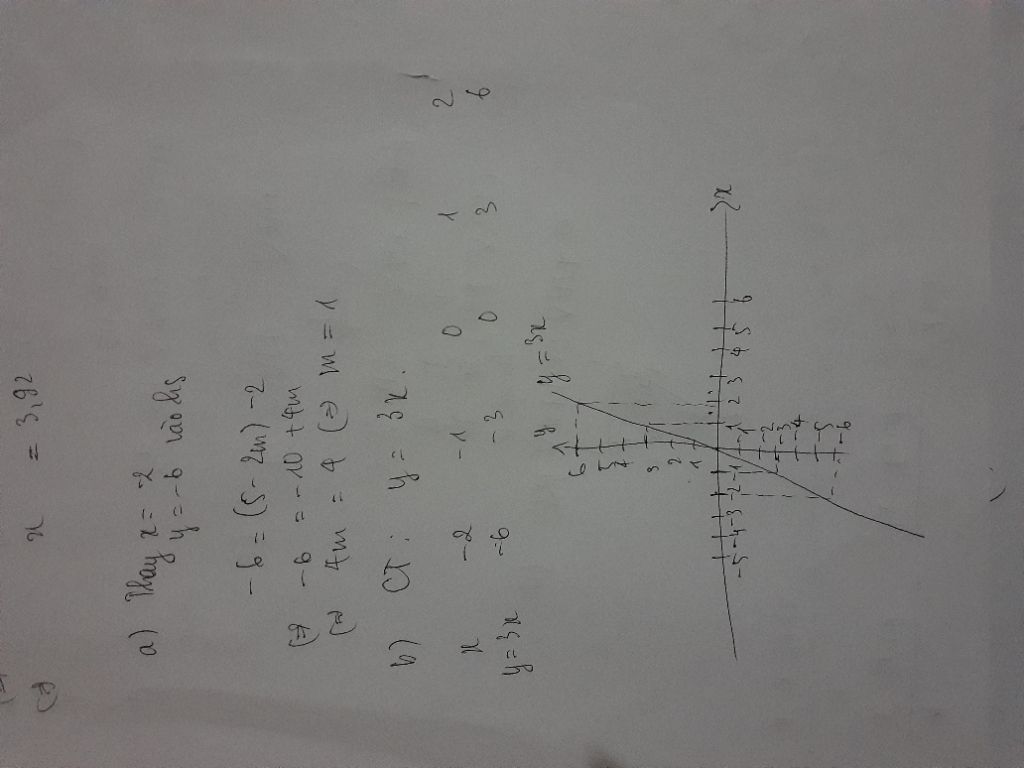 (=)
x = 3,92
a) Thay x = -2
y = -6 vào hs
-6 = (5 - 2m) -2
(=) -6 = -10 + 4m
(=) 4m = 4 (=) m = 1
b) CT: y = 3x.
x -2 -1 0 1 2
y=3x -6 -3 0 3 6
y y = 3x
6
5
4
3
2
1
-5 -4 -3 -2 -1 1 2 3 4 5 6 x
-1
-2
-3
-4
-5
-6